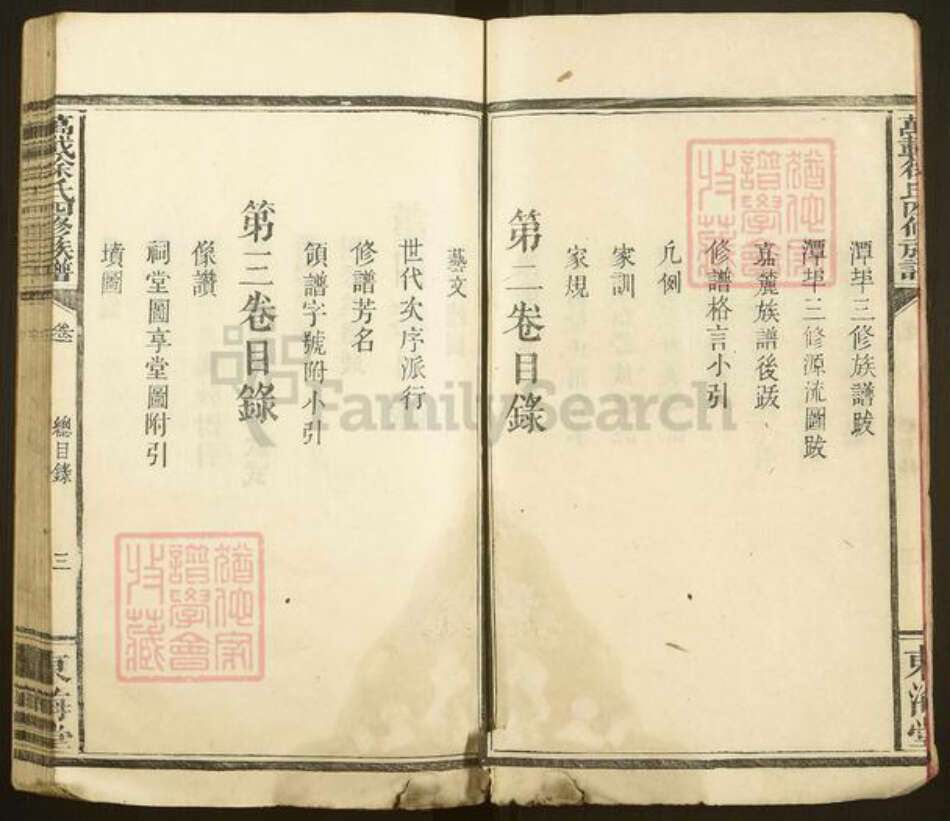 潭埠三修族譜跋
潭埠三修源流圖跋
嘉麓族譜後跋
修譜格言小引
凡例
家訓
家規
第二卷目錄
藝文
世代次序派行
修譜芳名
領譜字號附小引
第三卷目錄
像讚
祠堂圖享堂圖附引
墳圖
萬載徐氏四修族譜
卷
總目錄
三
東海堂
萬載徐氏四修族譜
東海堂
猶他家
譜學會
收藏
猶他家
譜學會
收藏
FamilySearch